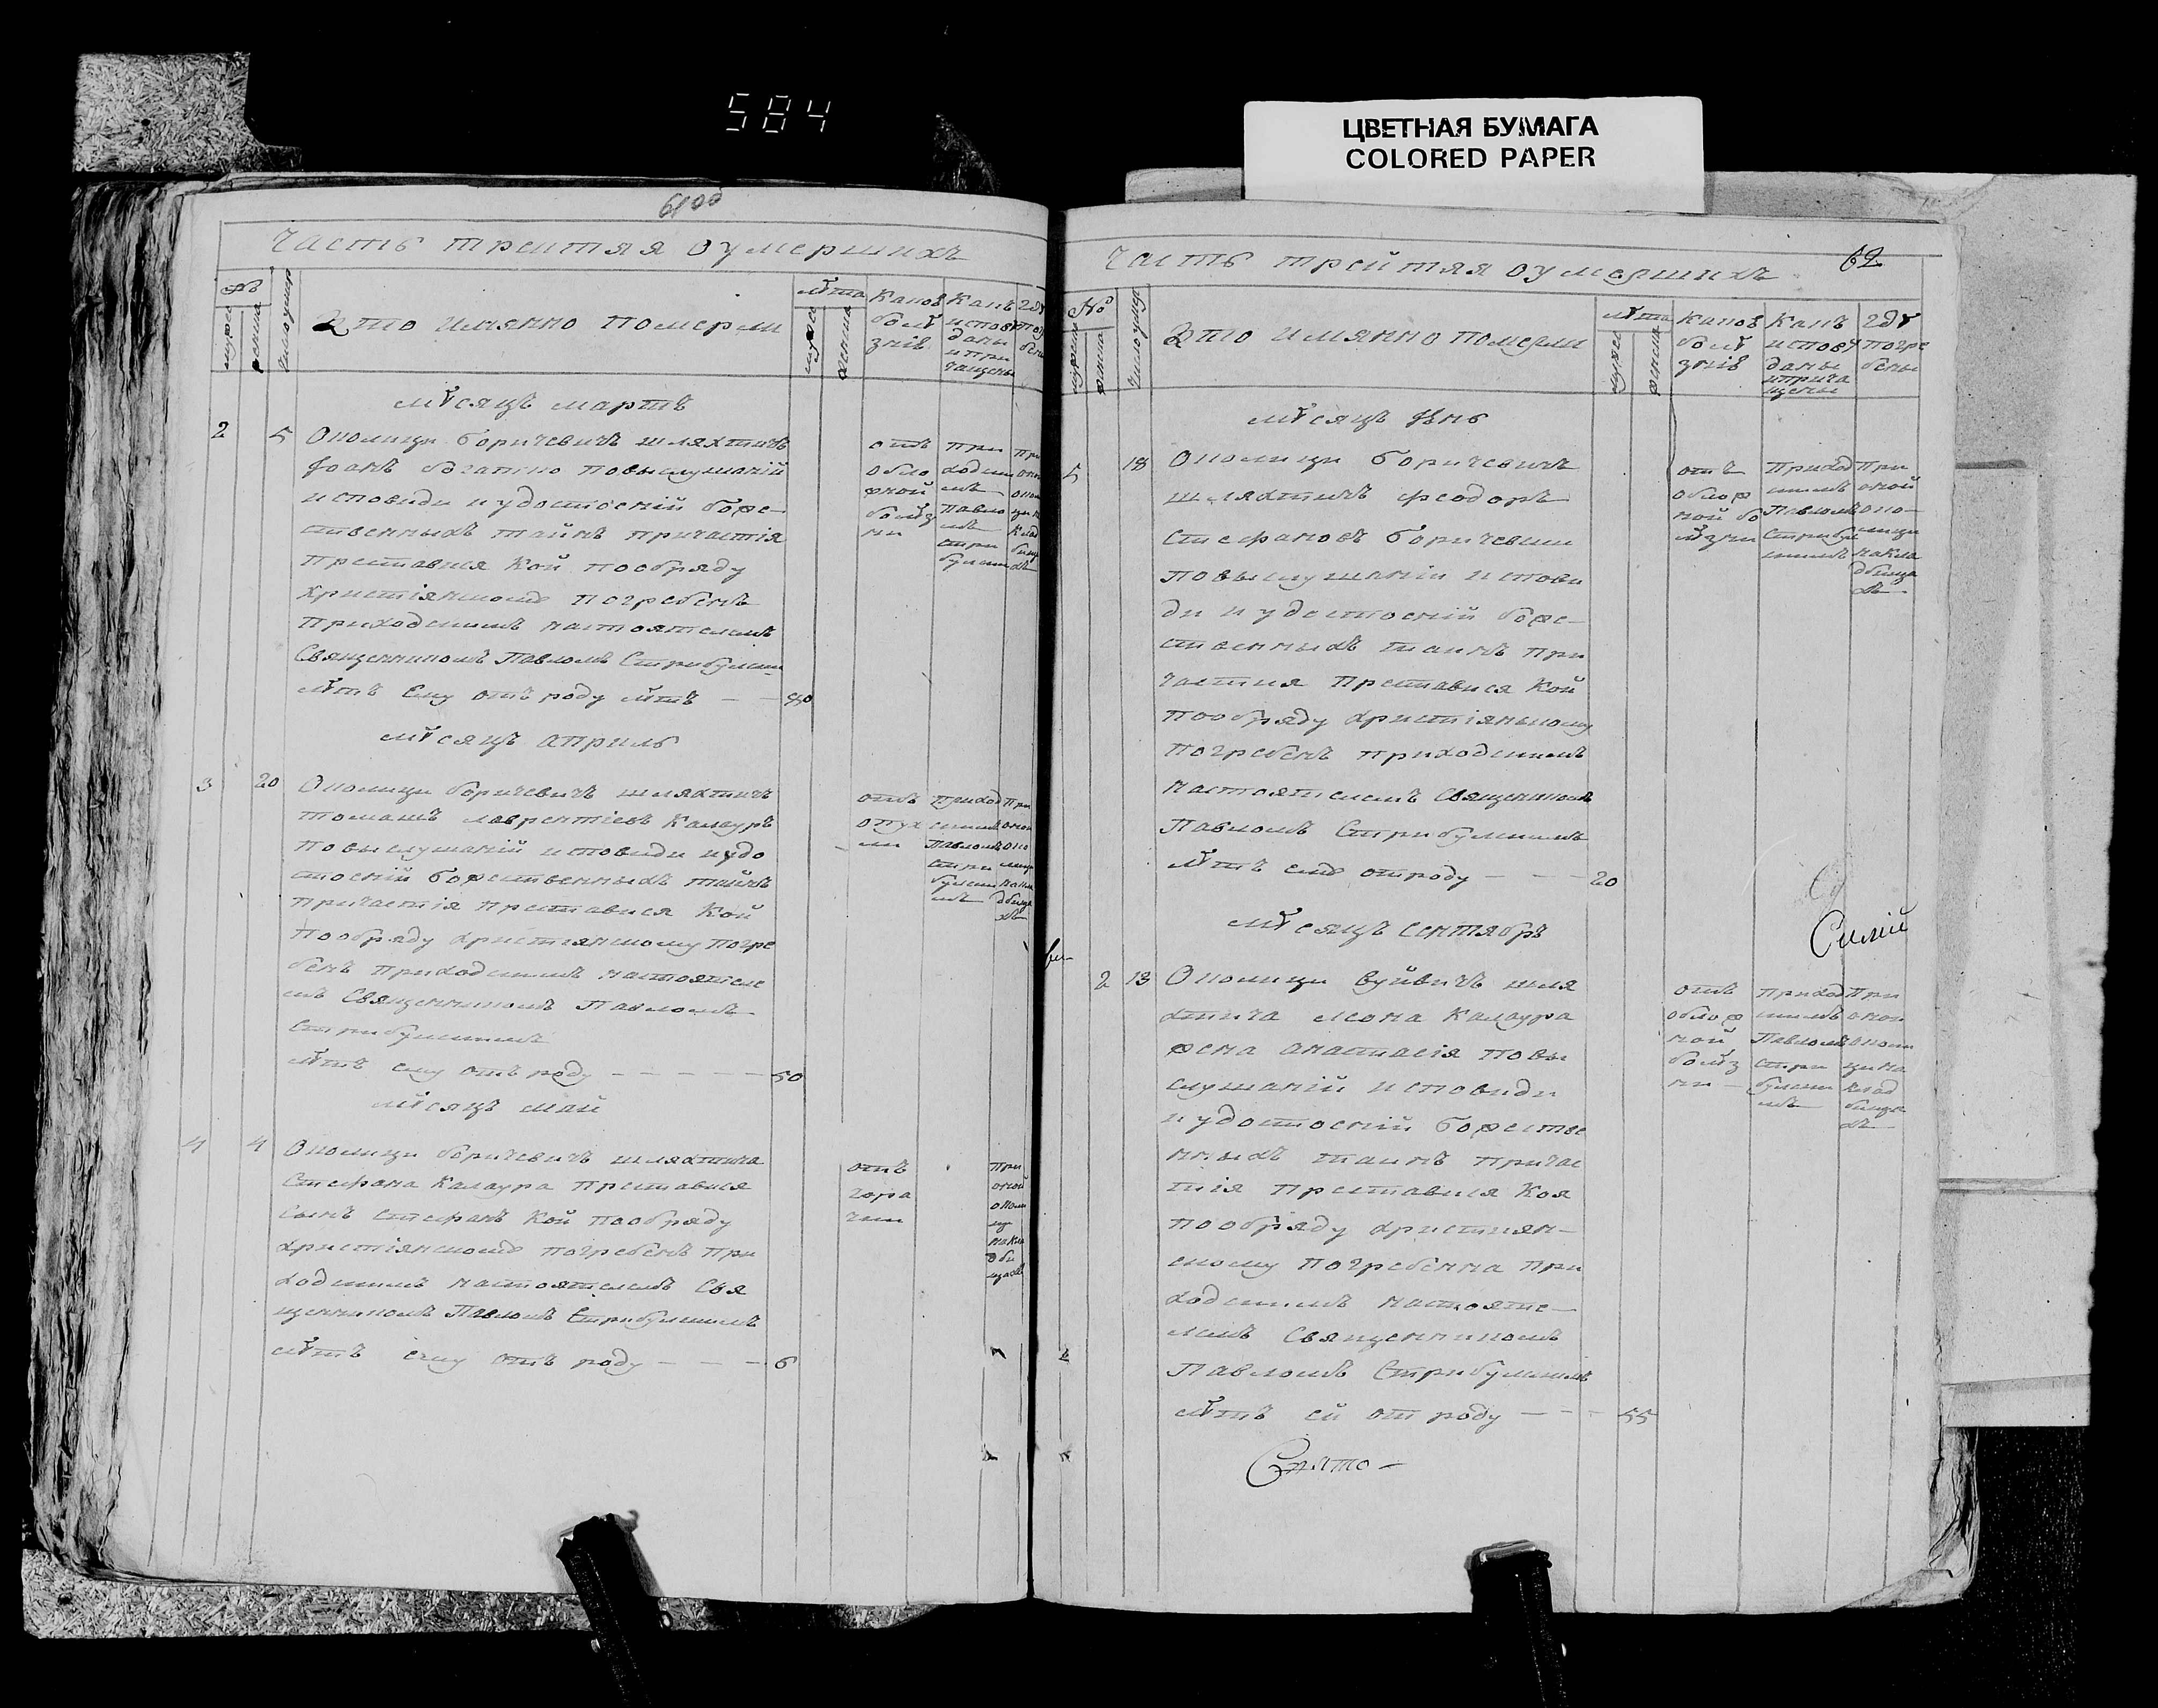 584
ЦВЕТНАЯ БУМАГА
COLORED PAPER
61об
Часть третяя оумершихъ
№
лѣта
Кто имянно померли
Какою болѣзнiю
мѣсяцъ мартъ
2 5 Околици боричевичъ шляхтичъ
Iоанъ повыслушанiй
исповиди иудостоенiй боже-
ственныхъ тайнъ причастiя
преставися кой пообряду
христiянскому погребенъ
приходскимъ настоятелемъ
Священникомъ Павломъ Стрибульским
лѣтъ Ему отъ роду лѣтъ — 80
отъ
обло
жной
болѣз
ни
при
ходски
мъ
Павло
мъ
стри
бульски
мъ
мѣсяцъ априль
3 20 Околици боричевичъ шляхтичъ
томашъ лаврентiевъ Калауръ
повыслушанiй исповиди иудо
стоенiй божественныхъ тайнъ
причастiя преставися кой
пообряду християнскому погре
бенъ приходскимъ настоятеле
мъ Священникомъ Павломъ
стрибульскимъ
лѣтъ ему отъ роду — — — — — 50
отъ
опух
ли
приход
скимъ
Павломъ
стри
бульски
мъ
мѣсяцъ май
4 4 Околици боричевичъ шляхтича
Стефана Калаура преставися
сынъ стефанъ кой пообряду
христiянскому погребенъ при
ходскимъ настоятелемъ Свя
щенникомъ Павломъ Стрибульскимъ
лѣтъ ему отъ роду — — — 6
отъ
горя
чки
при
оной
околи
ци
накла
дби
щахъ
62
Часть трейтяя оумершихъ
№
лѣта
Кто имянно померли
Какою болѣзнiю
Кѣмъ исповѣданы ипричащены
гдѣ погребены
мѣсяцъ Iюнь
5 18 Околици боричевичъ
шляхтичъ феодоръ
Стефановъ боричевски
повыслушанiи испови
ди иудостоенiй боже-
ственныхъ таинъ при
частия преставися кой
пообряду христiянскому
погребенъ приходскимъ
настоятелемъ Священникомъ
Павломъ Стрибульскимъ
лѣтъ ему отроду — — — 20
отъ
облож
ной бо
лѣзни
приход
скимъ
Павломъ
Стрибул
скимъ
при
оной
око-
лици
накла
дбища
хъ
мѣсяцъ Сентябръ
2 13 Околици вуйвичъ шля
хтича леона Калаура
жена анастасiя повы
слушанiй исповиди
иудостоенiй божестве
нныхъ таинъ причас
тiя преставися коя
пообряду християн-
скому погребенна при
ходскимъ настояте-
лемъ Священникомъ
Павломъ Стрибульскимъ
лѣтъ ей от роду — — — 55
отъ
облож
ной
болѣз
ни
приход
скимъ
Павломъ
стри
бульски
мъ
при
оной
околи
цина
клад
бища
хъ